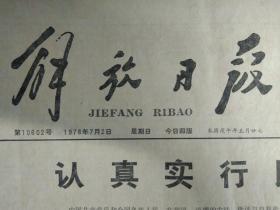 解放日报
JIEFANG RIBAO
第10602号 1978年7月2日 星期日 今日四版 农历戊午年五月廿七
认真实行